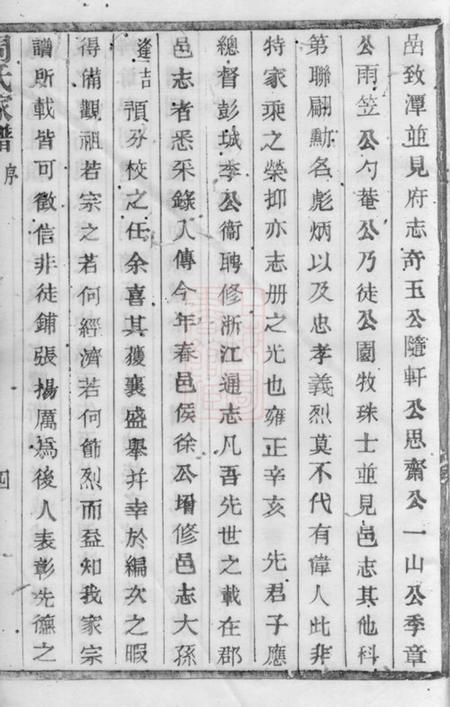 嵒致潭並見府志奇玉公隨軒公思齋公一山公季章
公雨笠公勺菴公乃徒公園牧珠士並見邑志其他科
第聯翩勳名彪炳以及忠孝義烈莫不代有偉人此非
特家乘之榮抑亦志册之光也雍正辛亥 先君子應
總督彭城李公衞聘修浙江通志凡吾先世之載在郡
邑志者悉采錄入傳今年春邑侯徐公增修邑志大孫
逢吉預分校之任余喜其獲襄盛舉并幸於編次之暇
得備觀祖若宗之若何經濟若何節烈而益知我家宗
譜所載皆可徵信非徒鋪張揚厲為後人表彰先德之
周氏家譜 序 四